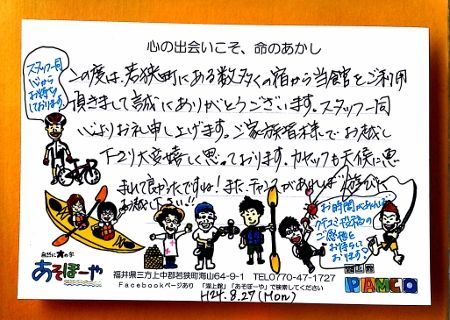 心の出会いこそ、命のあかし
スタッフ一同
心から
お待ち
しております!
この度は、若狭町にある数多くの宿から当館をご利用
頂きまして誠にありがとうございます。スタッフ一同
心よりお礼申し上げます。ご家族皆様でお越し
下さり大変嬉しく思っております。カヤックも天候に恵
まれて良かったですね!また、チャンスがあれば遊びに
お越し下さい!!
お時間があれば
クチコミ投稿の
ご協力
お待ちして
おります
あそぼーや
湖上館
PAMCO
福井県三方上中郡若狭町海山64-9-1 TEL0770-47-1727
Facebookページあり 「湖上館」「あそぼーや」で検索してください
H24.8.27(Mon)